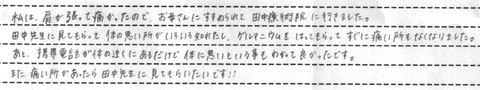 私は、肩が張って痛かったので、お母さんにすすめられて田中療術院に行きました。
田中先生に見てもらって体の悪い所がいろいろ知れたし、ゲルマニウムをはってもらってすぐに痛い所もなくなりました。
あと、携帯電話が体の近くにあるだけで体に悪いという事もわかって良かったです。
また痛い所があったら田中先生に見てもらいたいです!!